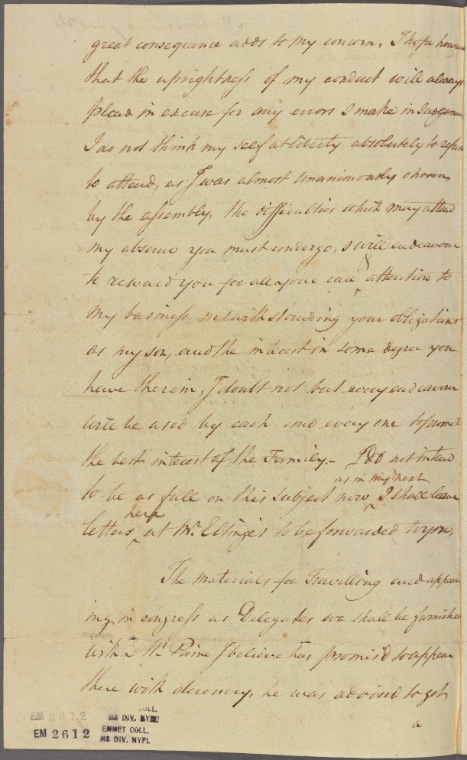 great consequence adds to my concern, I hope however
that the uprightness of my conduct will always
plead in excuse for any errors I make in Judgment
I do not think my self at liberty absolutely to refuse
to attend, as I was almost unanimously chosen
by the assembly, the difficulties which may attend
my absence you must undergo, I will endeavour
to reward you for all your care & attention to
my business notwithstanding your obligations
as my son, and the interest in some degree you
have therein, I doubt not but every endeavour
will be used by each and every one to promote
the best interest of the Family.- I do not intend
as in my next
to be as full on this subject now, I shall leave
here
letters at Mr. Ellinge's to be forwarded to you,
The materials for Travelling and appear
ing in congress as Delegates we shall be furnished
with Mr. Paine I believe has promis'd to appear
there with decency, he was advised to get
a
EM 2612
EMMET COLL.
MS DIV. NYPL
COLL.
MS DIV. NYPL
EM 2612